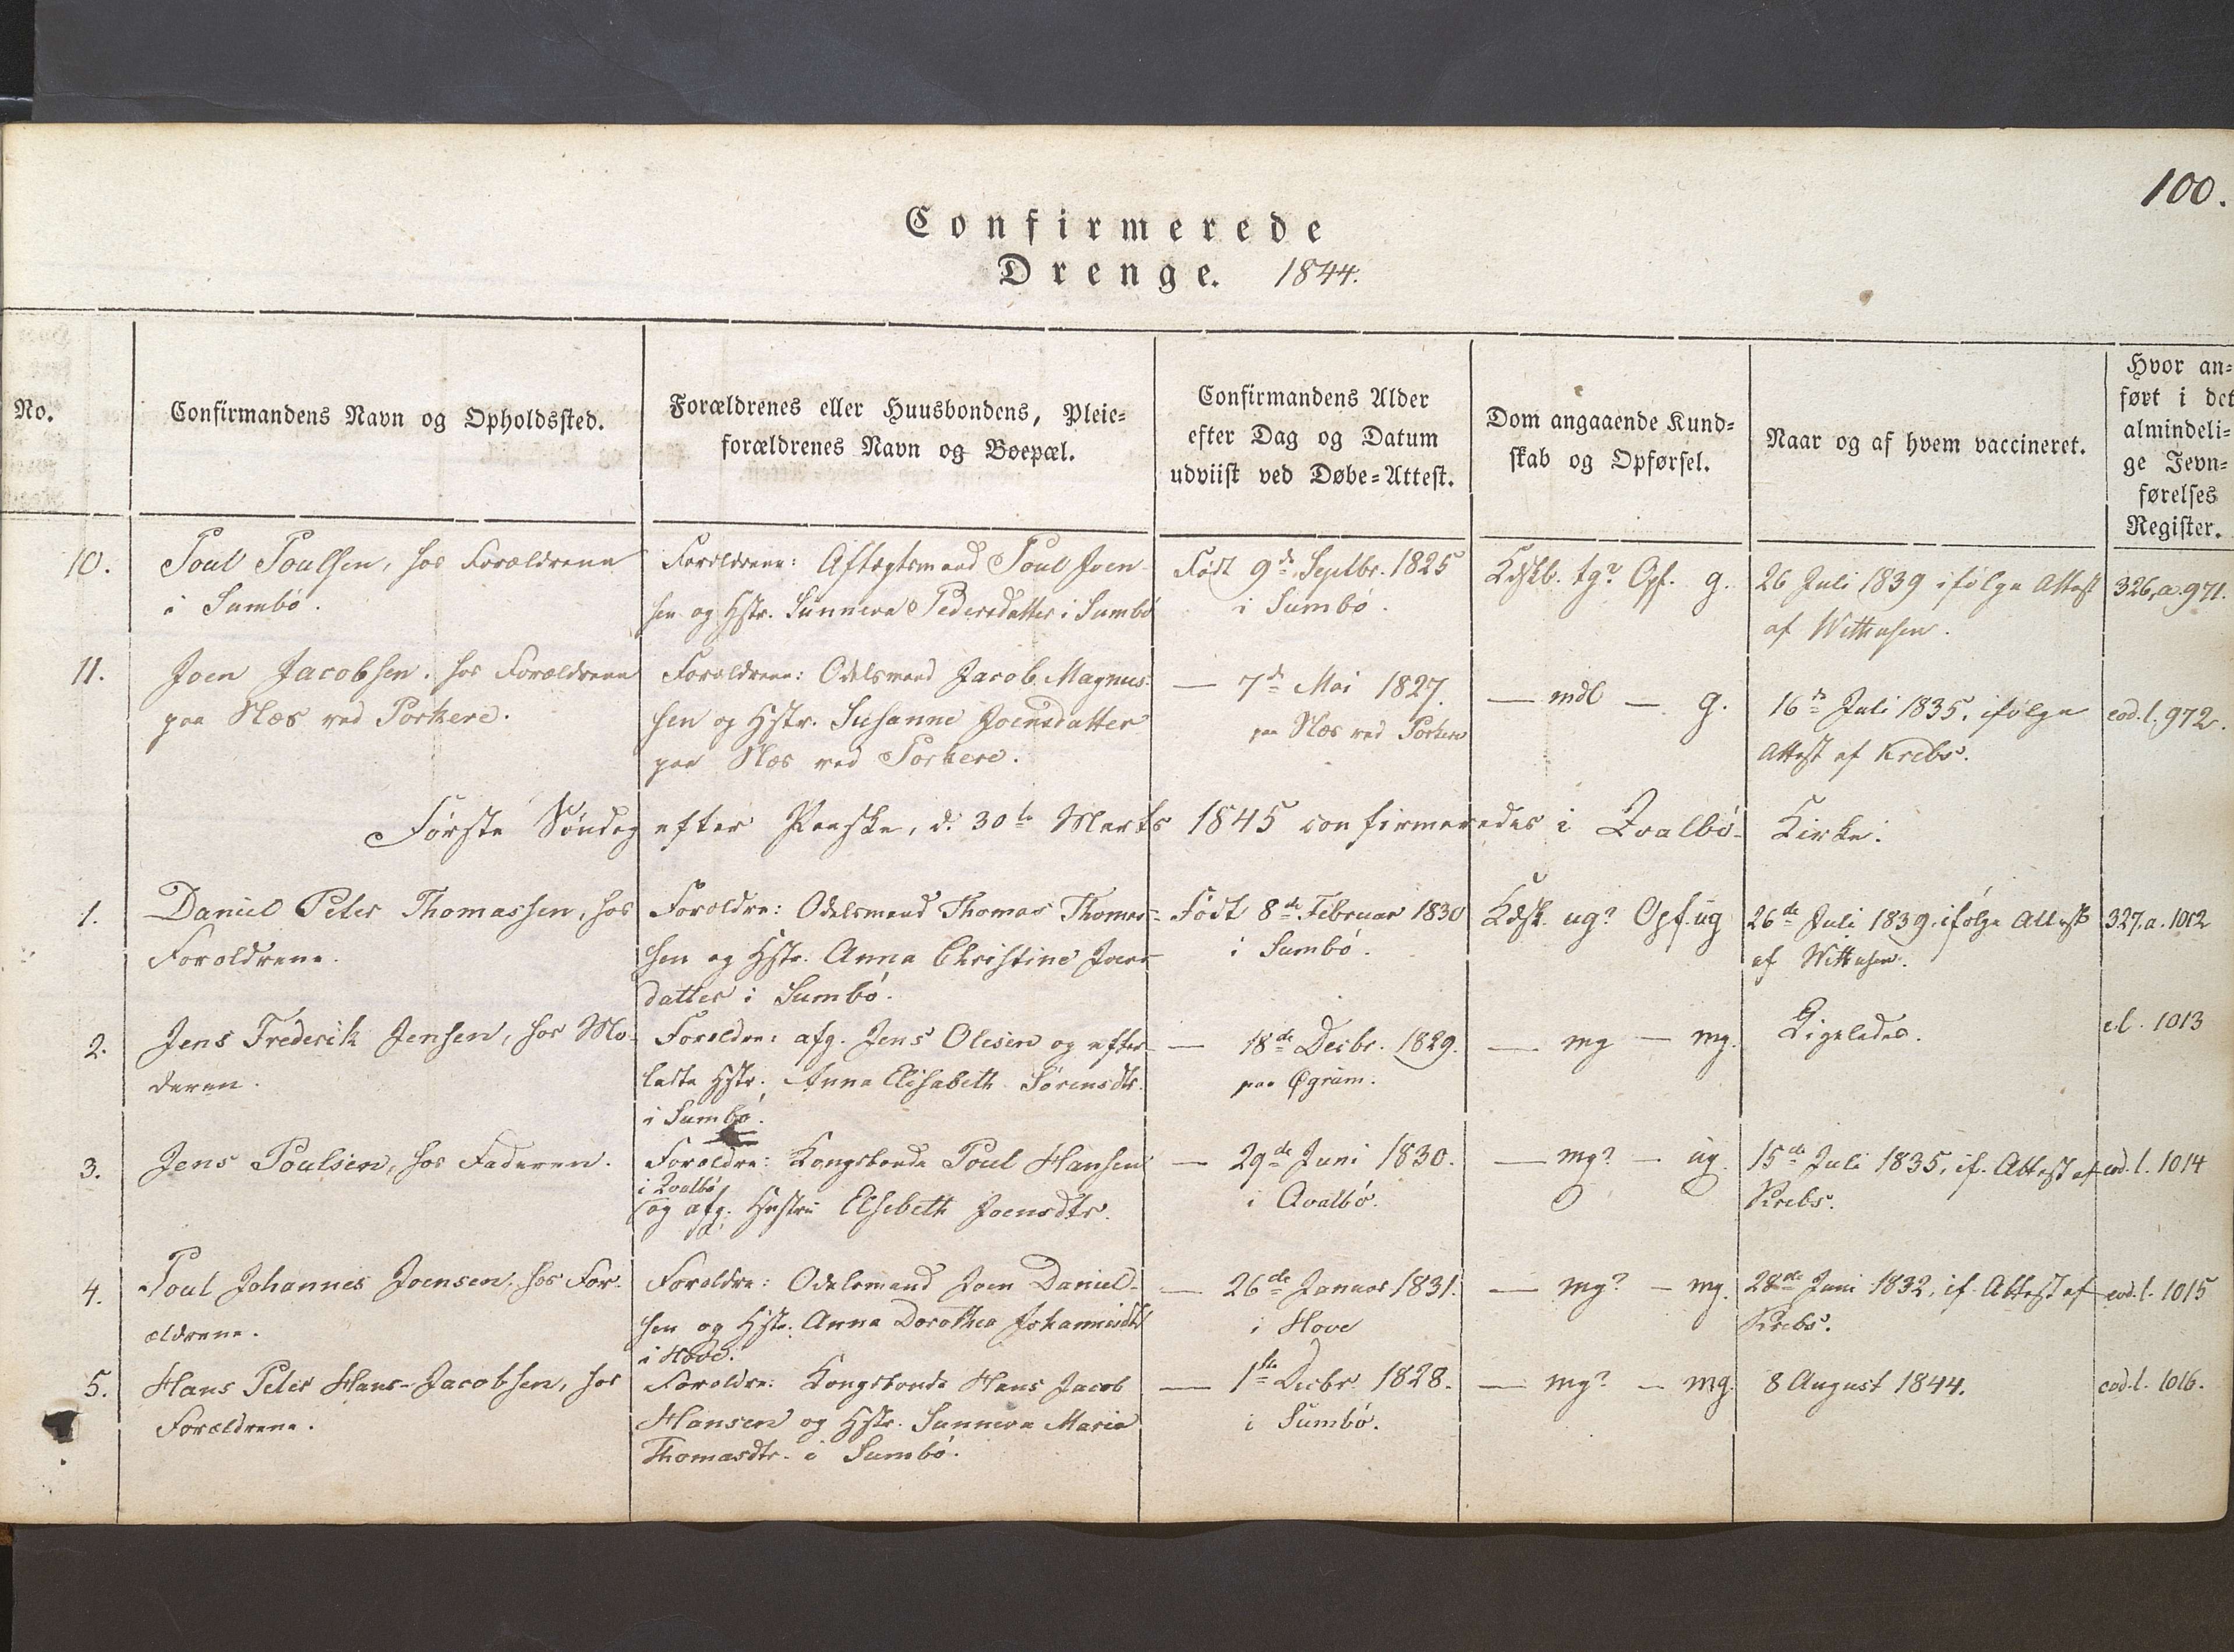 100.
Confirmerede
Drenge. 1844.
No.
Confirmandens Navn og Opholdssted.
Forældrenes eller Huusbondens, Pleie=
forældrenes Navn og Boepæl.
Confirmandens Alder
efter Dag og Datum
udviist ved Døbe=Attest.
Dom angaaende Kund=
skab og Opførsel.
Naar og af hvem vaccineret.
Hvor an=
ført i det
almindeli=
ge Jevn=
førelses
Register.
10.
Poul Poulsen, hos Forældrene
i Sumbö.
Forældrene: Aftægtsmand Poul Joen-
sen og Hstr. Sunneva Pedersdatter i Sumbö
Födt 9de Septbr. 1825
i Sumbö.
Kdskb. tg? Opf. g.
26 Juli 1839 ifölge Attest
af Wittusen.
326,a.971.
11.
Joen Jacobsen, hos Forældrene
paa Næs ved Porkere.
Forældrene: Odelsmand Jacob Magnus-
sen og Hstr. Susanne Joensdatter
paa Næs ved Porkere.
— 7de Mai 1827.
paa Næs ved Porkere
— mdl — g.
16de Juli 1835, ifölge
Attest af Krebs.
eod. l. 972.
Förste Söndag efter Paaske, d. 30te Marts 1845 confirmeredes i Qvalbö- Kirke:
1.
Daniel Peter Thomassen, hos
Forældrene.
Forældre: Odelsmand Thomas Thomas-
sen og Hstr. Anna Christine Joens-
datter i Sumbö.
Födt 8de Februar 1830
i Sumbö.
Kdsk. ug? Opf. ug
26de Juli 1839, ifölge Attest
af Wittusen.
327.a.1012
2.
Jens Frederik Jensen, hos Mo-
deren.
Forældre: afg. Jens Olesen og efter-
ladte Hstr. Anna Elisabeth Sörensdtr.
i Sumbö.
— 18de Decbr. 1829.
paa Øgrum.
— mg — mg.
Ligeledes.
e.l. 1013
3.
Jens Poulsen, hos Faderen.
Forældre: Kongsbonde Poul Hansen
i Qvalbö
og afg. Hustru Elsebeth Joensdtr.
— 29de Juni 1830.
i Qvalbö.
— mg? — ug.
15de Juli 1835, if. Attest af
Krebs.
eod. l. 1014
4.
Poul Johannes Joensen, hos For-
ældrene.
Forældre: Odelsmand Joen Daniel-
sen og Hstr. Anna Dorothea Johannesdtr
i Hove.
— 26de Januar 1831.
i Hove
— mg? — mg.
28de Juni 1832, if. Attest af
Krebs.
eod. l. 1015
5.
Hans Peter Hans-Jacobsen, hos
Forældrene.
Forældre: Kongsbonde Hans Jacob
Hansen og Hstr. Sunneva Maria
Thomasdtr. i Sumbö.
— 1ste Decbr. 1828.
i Sumbö.
— mg? — mg.
8 August 1844.
eod. l. 1016.